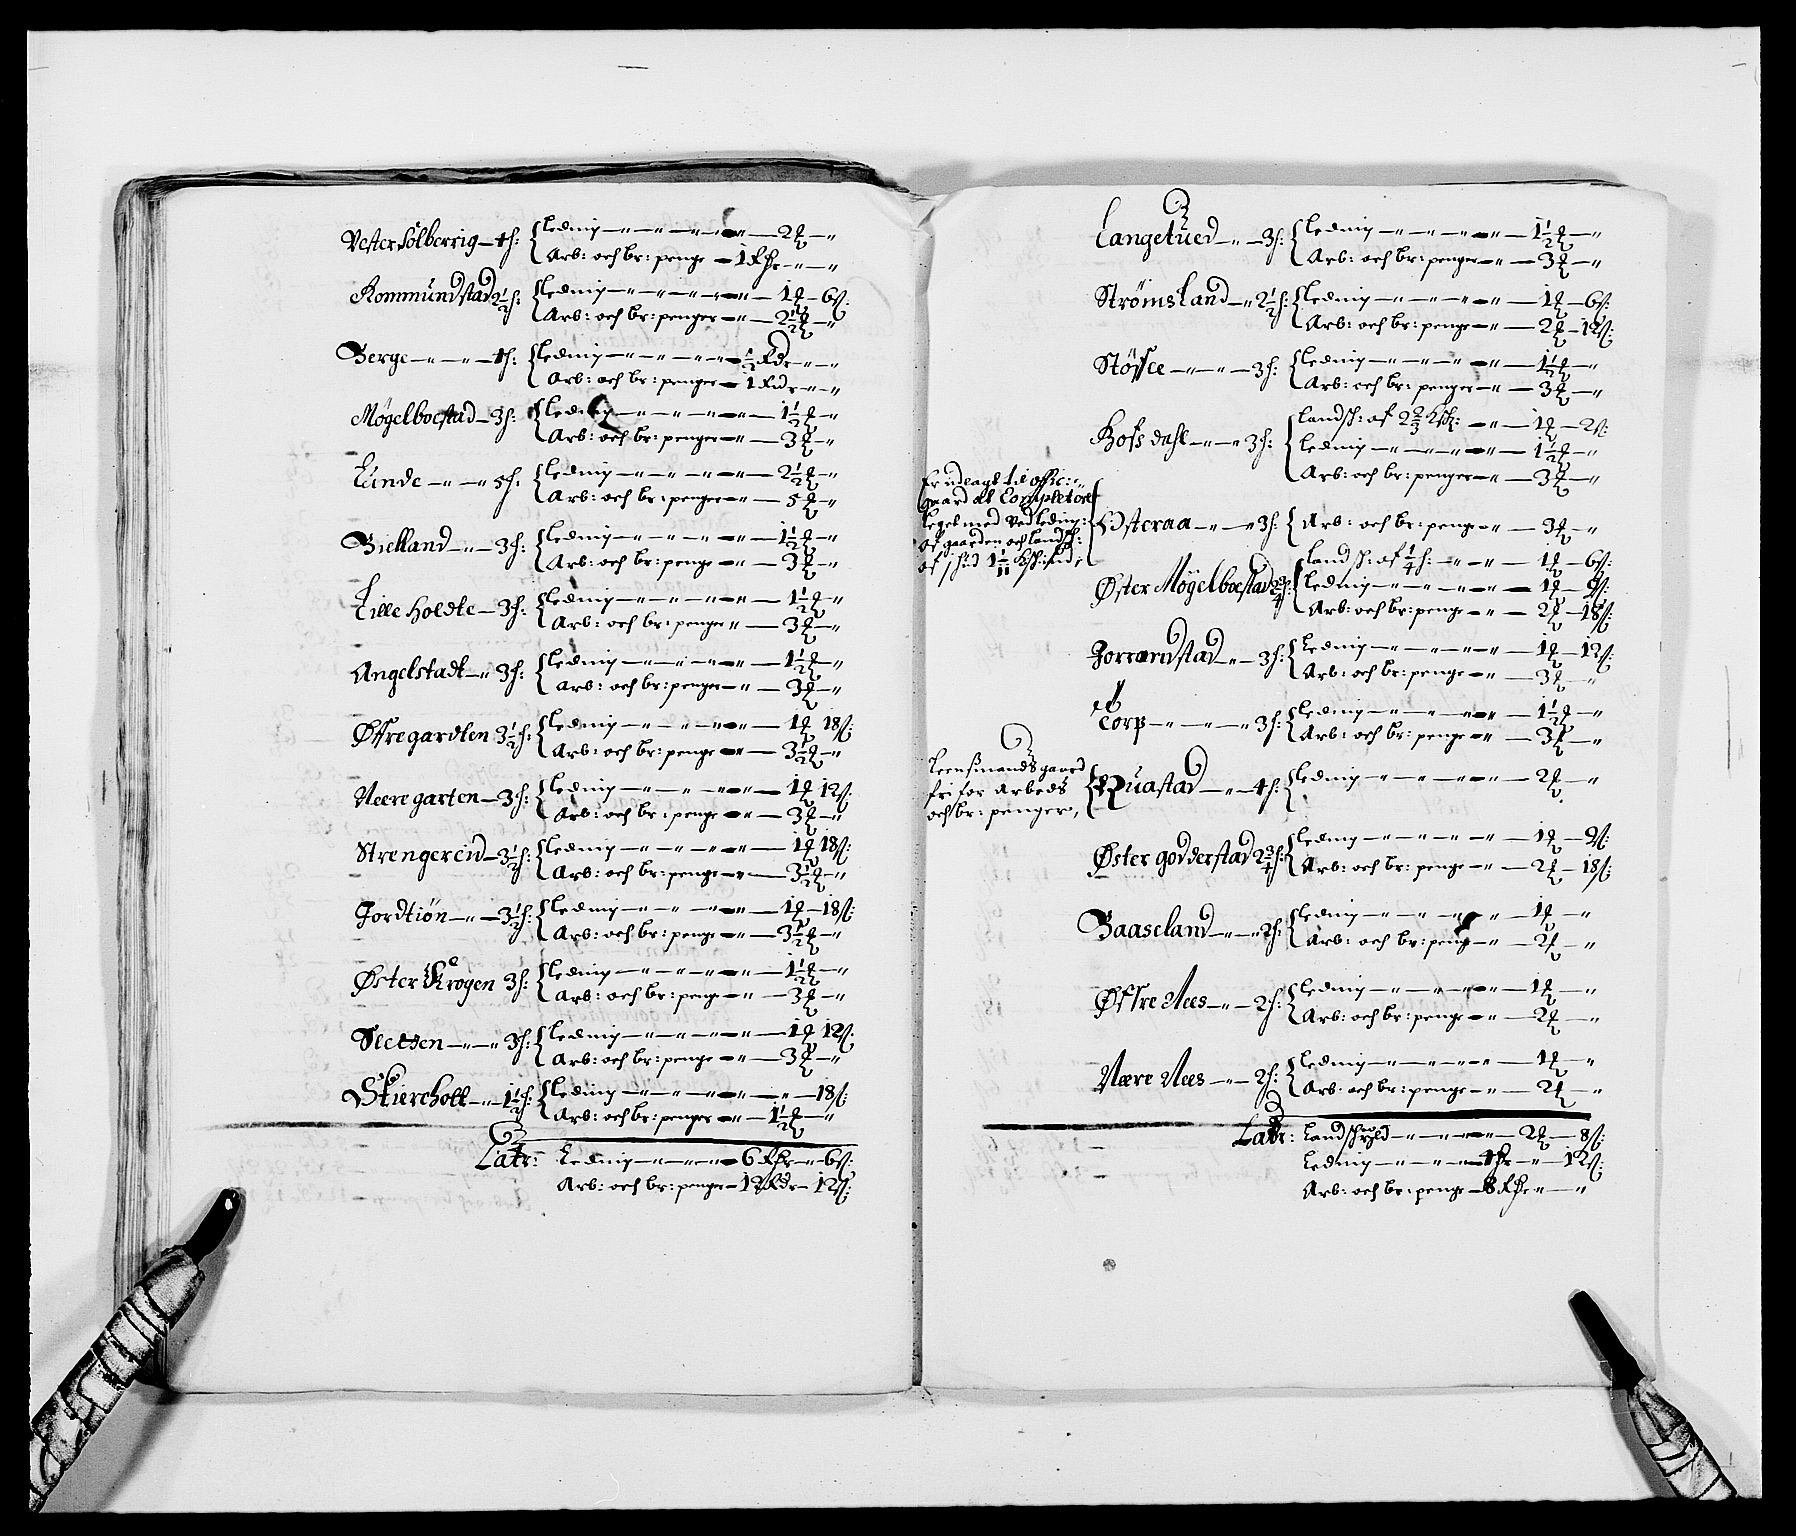 Vester Sölberrig – 4 h: { Leding – „ – „ – „ – 2 ₰ – „
Arb: och br: penge – 1 Rdr – „ – „
Rommundstad 2½ h: { Leding – „ – „ – „ – 1 ₰ – 6 s:
Arb: och br: penger – „ – 2½ ₰ – „
Berge – „ – „ – 4 h: { Leding – „ – „ – „ – „ – ½ Rdr – „ – „
Arb: och br: penger – 1 Rdr – „ – „
Møgelboestad – 3 h: { Leding – „ – „ – „ – 1½ ₰ – „
Arb: och br: penger – „ – 3 ₰ – „
Lunde – „ – „ 5 h: { Leding – „ – „ – „ – „ – 2½ ₰ – „
Arb: och br: penger – „ – 5 ₰ – „
Bielland – „ – 3 h: { Leding – „ – „ – „ – 1½ ₰ – „
Arb: och br: penge – „ – 3 ₰ – „
Lille Holdte – 3 h: { Leding – „ – „ – „ – 1½ ₰ – „
Arb: och br: penger „ – 3 ₰ – „
Angelstadt – „ 3 h: { Leding – „ – „ – „ – 1½ ₰ – „
Arb: och br: penger – „ – 3 ₰ – „
Øfre gardten 3½ h: { Leding – „ – „ – „ – 1 ₰ 18 s:
Arb: och br: penge – „ – 3½ ₰ – „
Neere garten – 3 h: { Leding – „ – „ – „ – 1 ₰ 12 s:
Arb: och br: penge – „ – 3 ₰ – „
Strengereid – 3½ h: { Leding – „ – „ – „ – 1 ₰ 18 s:
Arb: och br: penge – „ – 3½ ₰ – „
Jordtiön – „ – 3½ h: { Leding – „ – „ – „ – 1 ₰ – 18 s:
Arb: och br: penge – „ – 3½ ₰ – „
Øster Krogen 3 h: { Leding – „ – „ – „ – „ – 1½ ₰ – „
Arb: och br: penge – „ – 3 ₰ – „
Sletten – „ – „ 3 h: { Leding – „ – „ – „ – „ – 1 ₰ 12 s:
Arb: och br: penge – „ – 3 ₰ – „
Skiereholt – „ – 1½ h: { Leding – „ – „ – „ – „ – „ – 18 s:
Arb: och br: penger – „ – 1½ ₰ – „
Latr: Leding – „ – „ – „ – 6 Rdr – „ – 6 s:
Arb: och br: penger – 12 Rdr – 12 s:
Langetued – „ – 3 h: { Leding – „ – „ – „ – „ – 1½ ₰ – „
Arb: och br: penger – „ – 3 ₰ – „
Strömsland – „ 2½ h: { Leding – „ – „ – „ – „ – 1 ₰ – 6 s:
Arb: och br: penge – „ – 2 ₰ – 12 s:
Stösse – „ – „ – 3 h: { Leding – „ – „ – „ – „ – 1½ ₰ – „
Arb: och br: penger – „ – 3 ₰ – „
Hofsdahl – „ – „ 3 h: { Landsh: af 2⅔ Ksh: – „ – 1 ₰ – 2 s:
Leding – „ – „ – „ – „ – 1½ ₰ – „
Arb: och br: penger – „ – 3 ₰ – „
Er udlagt til offic:
gaard at Completere
legel med Ved leding:
af gaarden och landsh:
af
Østeraa – „ – „ 3 h: { Arb: och br: penge – „ – 3 ₰ – „
Øster Møgelboestad 2¾ h: { Landsh: af ¼ h: – „ – „ – 1 ₰ – 6 s:
Leding – „ – „ – „ – „ – 1 ₰ – 9 s:
Arb: och br: penge – „ – 2 ₰ – 18 s:
Jorrandstad – „ – 3 h: { Leding – „ – „ – „ – „ – 1 ₰ – 12 s:
Arb: och br: penge – „ – 3 ₰ – „
Torp – „ – „ – „ 3 h: { Leding – „ – „ – „ – „ – 1½ ₰ – „
Arb: och br: penge – „ – 3 ₰ – „
Leensmands gaard
fri for Arbeds
och br: penger,
Quastad – „ – 4 h: { Leding – „ – „ – „ – „ – 2 ₰ – „
Øster godderstad 2¾ h: { Leding – „ – „ – „ – „ – 1 ₰ – 9 s:
Arb: och br: penge – „ – 2 ₰ – 18 s:
Baaseland – „ – „ 2 h: { Leding – „ – „ – „ – „ – 1 ₰ – „
Arb: och br: penge – „ – 2 ₰ – „
Øfre Nees – „ – 2 h: { Leding – „ – „ – „ – „ – 1 ₰ – „
Arb: och br: penge – „ – 2 ₰ – „
Nære Nees – „ – 2 h: { Leding – „ – „ – „ – „ – 1 ₰ – „
Arb: och br: penge – „ – 2 ₰ – „
Latr: Landschyld – „ – „ – „ – 2 ₰ – 8 s:
Leding – „ – „ – „ – 4 Rdr – „ – 12 s:
Arb: och br: penge – 8 Rdr – „ – „